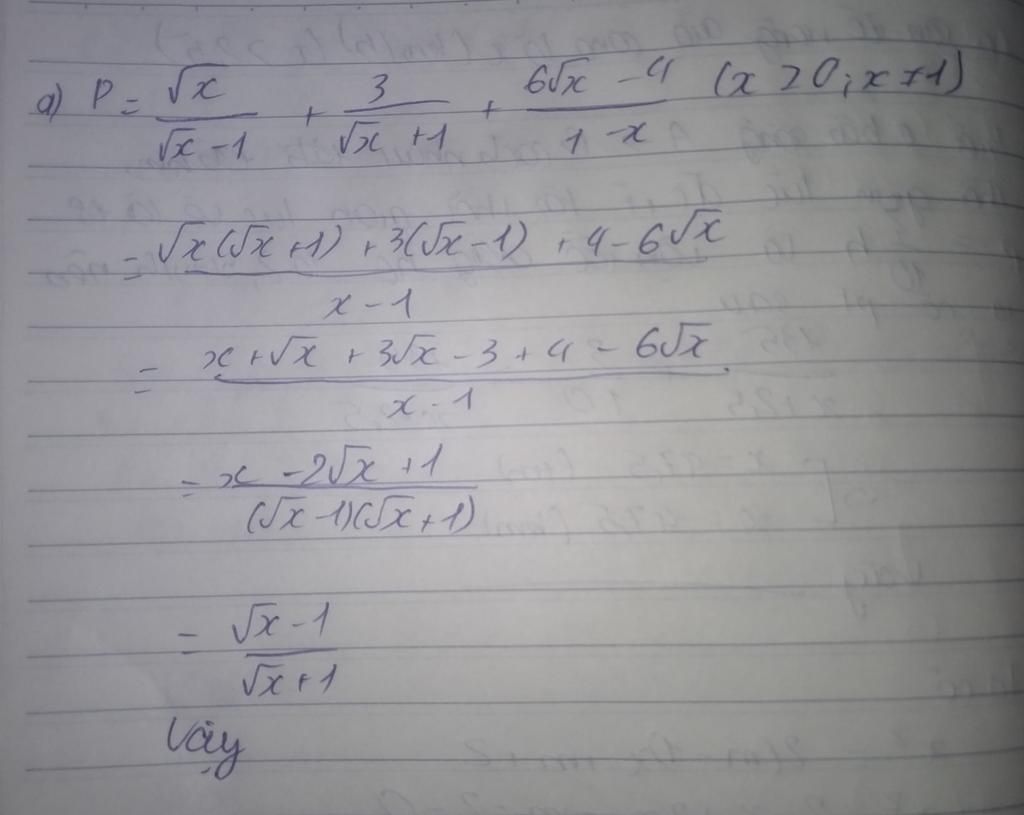 a) P = √x/(√x − 1) + 3/(√x + 1) + (6√x − 4)/(1 − x) (x > 0; x ≠ 1)
= (√x(√x + 1) + 3(√x − 1) + 4 − 6√x)/(x − 1)
= (x + √x + 3√x − 3 + 4 − 6√x)/(x − 1)
= (x − 2√x + 1)/((√x − 1)(√x + 1))
= (√x − 1)/(√x + 1)
Vậy